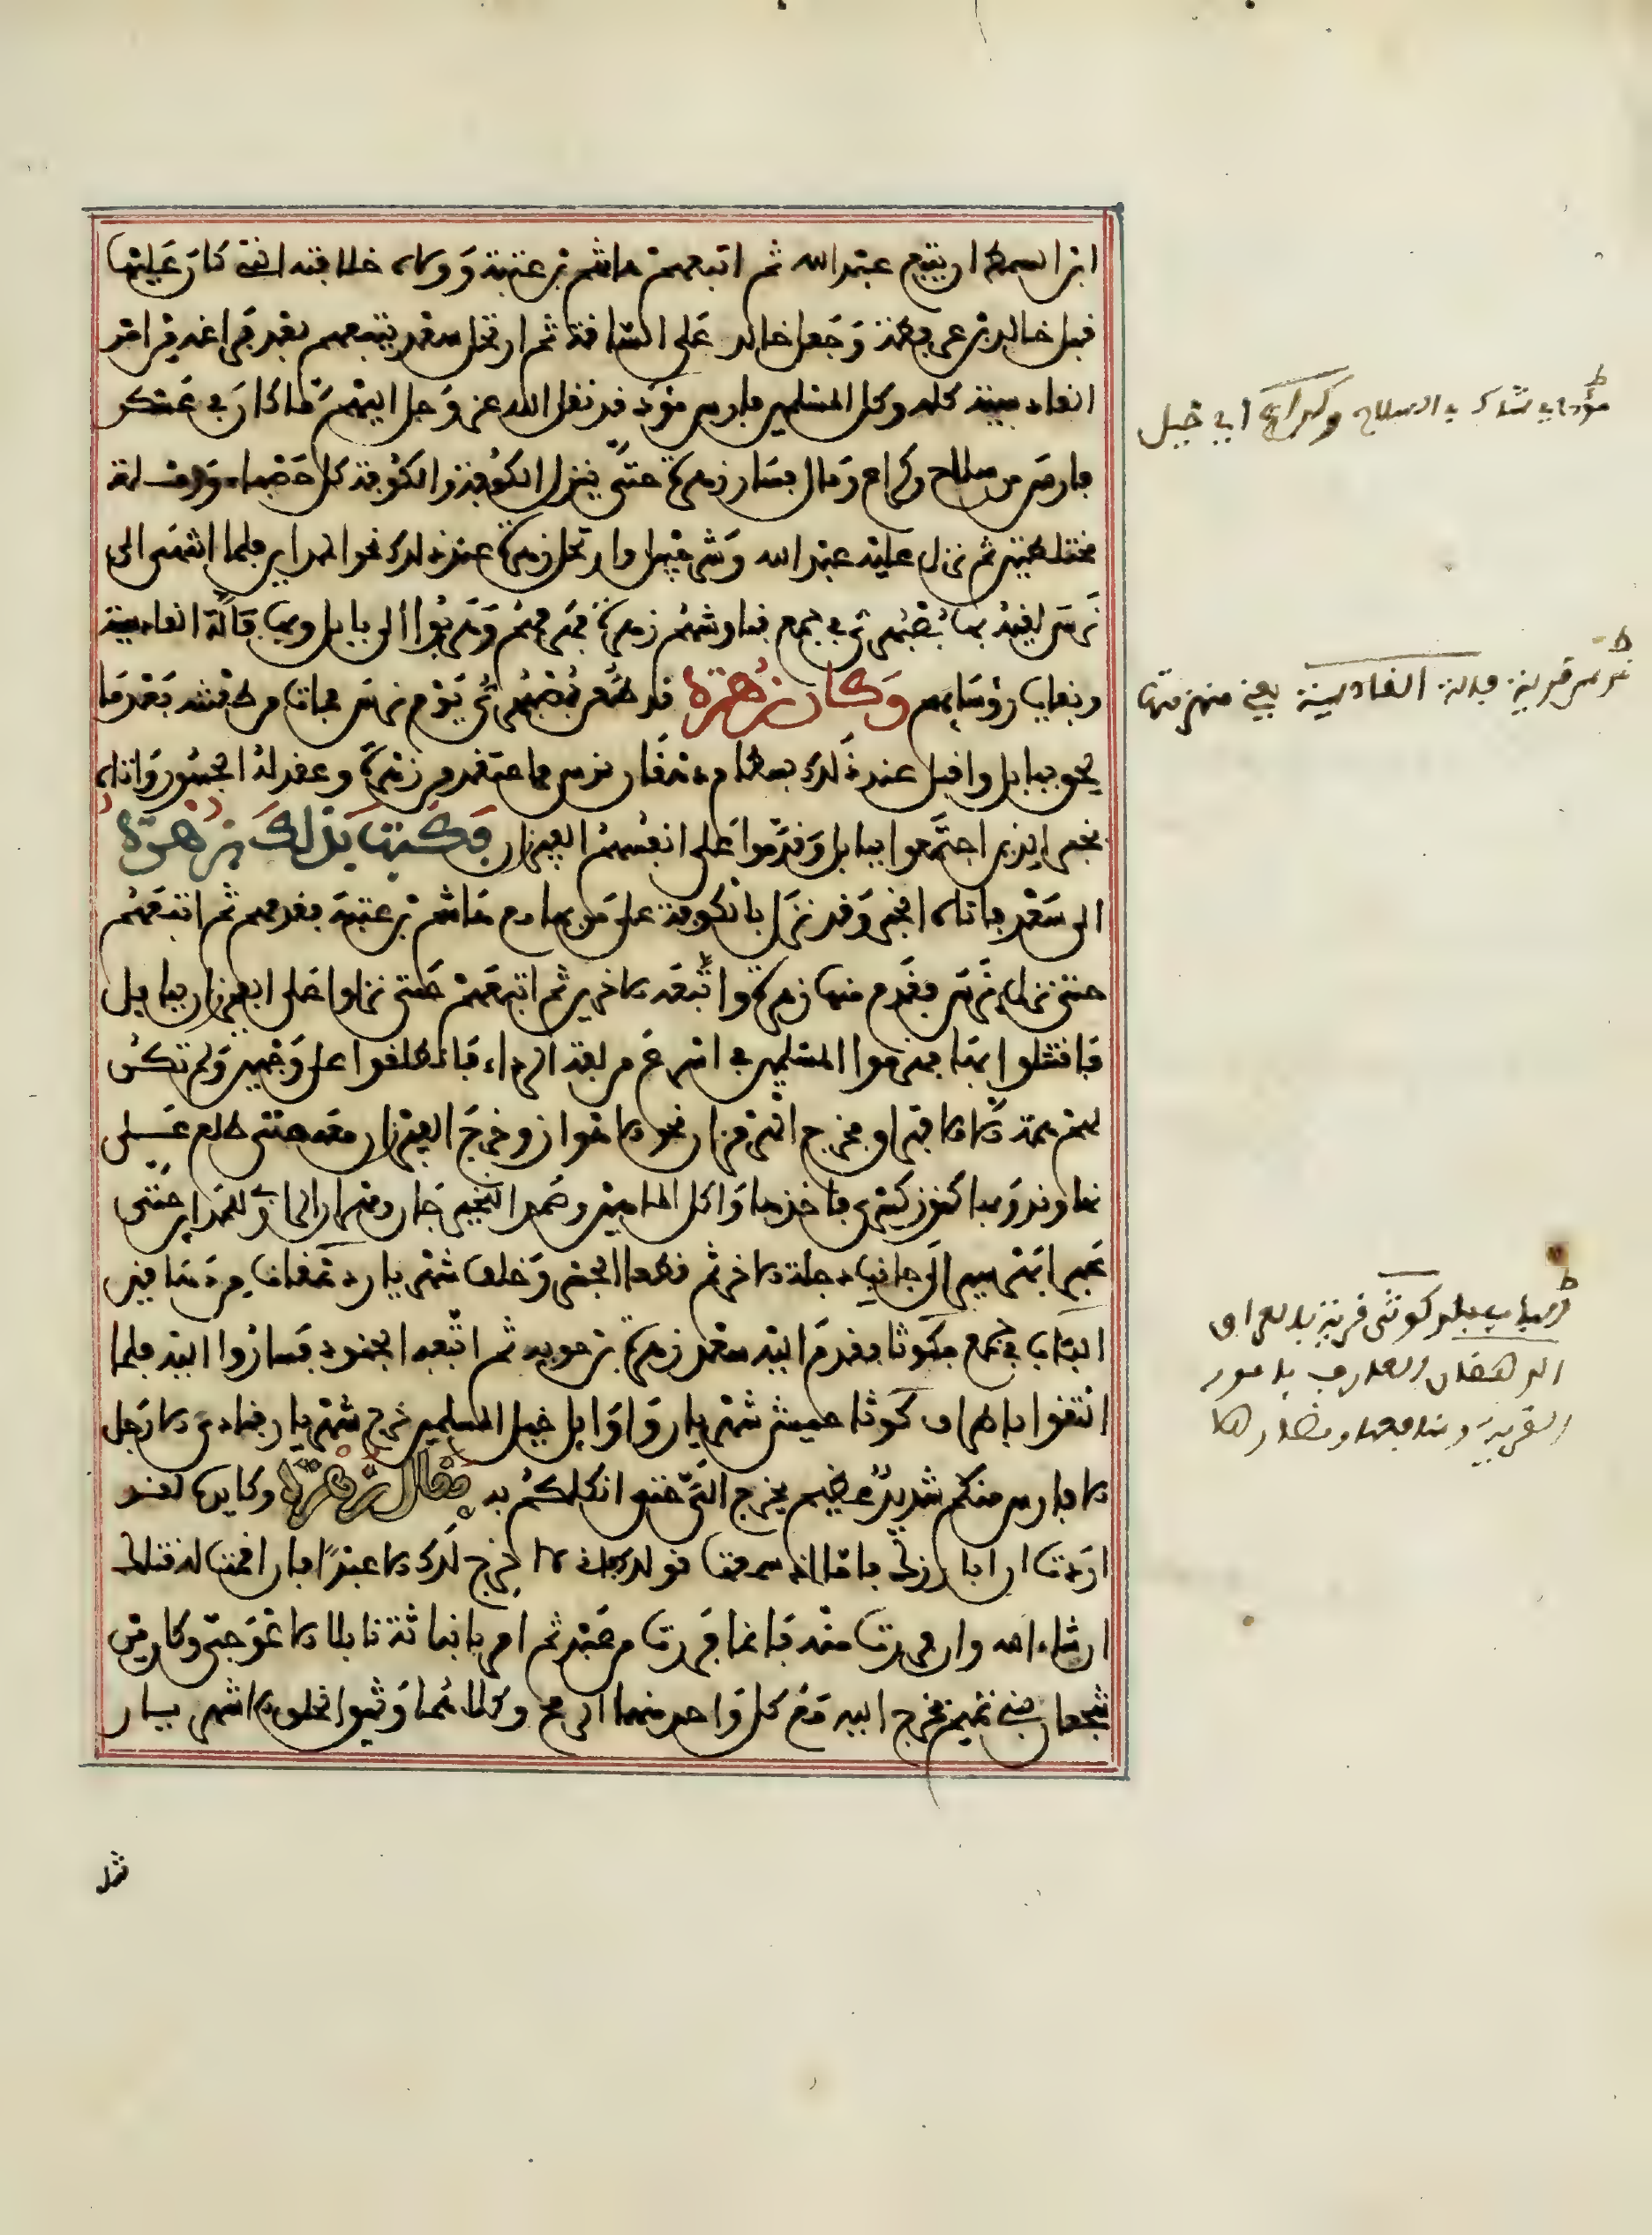 ابن السمط ان يتبع عبد الله ثم اتبعهم هاشم بن عتبة وولاه خلافته التي كان عليها
قبل خالد بن عرفطة وجعل خالد على الساقة ثم ارتحل سعد يتبعهم بعد فراغه من امر
القادسية كله وكل المسلمين فارس مؤد قد نقل الله عز وجل اليهم ما كان في عسكر
فارس من سلاح وكراع ومال فسار زهرة حتى ينزل الكوفة والكوفة كل حصباء ورملة
مختلطين ثم نزل عليه عبد الله وشرحبيل وارتحل زهرة عند ذلك نحو المداين فلما انتهى الى
بُرس لقيه بها بُصبُهرى في جمع فناوشهم زهرة فهزمهم وهربوا الى بابل وبها فالة القادسية
وبقايا رؤسايهم وكان زهرة قد طعن بُصبُهرى يوم برس فمات من طعنته بعدما
لحق ببابل واقبل عند ذلك بسطام دهقان برس فاعتقد من زهرة وعقد له الجسور واتاه
بخبر الذين اجتمعوا ببابل وقدموا على انفسهم الفيرزان فكتب بذلك زهرة
الى سعد فاتاه الخبر وقد نزل بالكوفة على من بها مع هاشم بن عتبة فقدمهم ثم اتبعهم
حتى نزل برس فقدم منها زهرة واتبعه الاخرين ثم اتبعهم حتى نزلوا على الفيرزان ببابل
فاقتتلوا بها فهزموا المسلمين في اسرع من لفت الرداء فانطلقوا على وجهين ولم تكن
لهم همة الا الافتراق فخرج الهرمزان نحو الاهواز وخرج الفيرزان معه حتى طلع على
نهاوند وبها كنوز كسرى فاخذها واكل الماهين وصمد النخيرجان ومهران الرازي للمداين حتى
عبرا بهرسير الى جانب دجلة الاخر ثم قطعا الجسر وخلف شهريار دهقانا من دهاقين
الباب في جمع بكوثا فقدم اليه سعد زهرة بن حوية ثم اتبعه الجنود فساروا اليه فلما
التقوا باطراف كوثا جيش شهريار واوايل خيل المسلمين خرج شهريار فنادى الا رجل
الا فارس منكم شديد عظيم يخرج الي حتى انكلكم به فقال زهرة وكايده لقد
اردت ان ابارزك فاما اذ سمعت قولك فاني لا اخرج لك الا عبدا فان اقمت له قتلك
ان شاء الله وان فررت منه فانما فررت من عبد ثم امر ابا نباتة نايلا الاعوجي وكان من
شجعان بني تميم فخرج اليه مع كل واحد منهما الرمح وكلاهما وثيق الخلق الا ان شهريار
مثل
ط
مؤد اي شاك في السلاح وكراع اي خيل
ط
برس قرية فالة القادسية يعني منهزمتها
ط
كوثى قرية بالعراق
الدهقان العارف بامور
القرية ومنافعها ومضارها